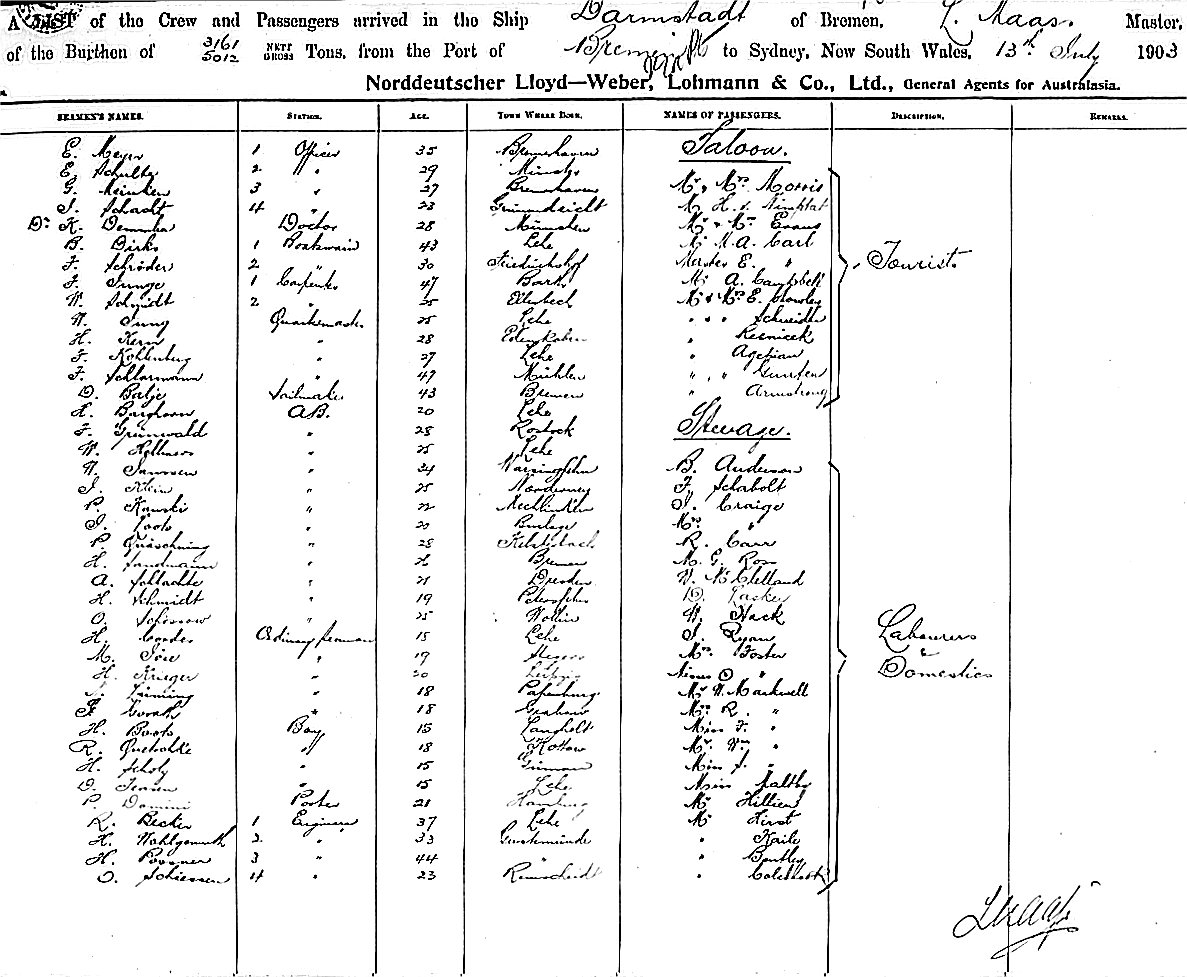 A LIST of the Crew and Passengers arrived in the Ship Darmstadt of Bremen, L. Maas. Master,
of the Burthen of 3161 5012 NETT GROSS Tons, from the Port of Bremen to Sydney, New South Wales, 13th July 1903
Norddeutscher Lloyd—Weber, Lohmann & Co., Ltd., General Agents for Australasia.
SEAMEN'S NAMES. STATION. AGE. TOWN WHERE BORN. NAMES OF PASSENGERS. DESCRIPTION. REMARKS.
E. Meyer 1 Officer 35 Bremerhaven Saloon.
E. Schultz 2 " 29 Münster
G. Meinken 3 " 27 Bremerhaven Mr & Mrs Morris
J. Schacht 4 " 23 Mr H. v. Nimptat
Dr K. Demmler Doctor 28 München Mr & Mrs Evans
B. Dirks 1 Boatswain 43 Lehe Mr M. A. Carl
F. Schröder 2 " 30 Friedrichshof Master E. " Tourists
F. Junge 1 Carpenter 47 Mr A. Campbell
W. Schmidt 2 " 25 Ellerbeck Mr & Mrs E. Crowley
W. Jung Quartermaster 25 Lehe " " " Schneider
H. Kern " 28 Edenkoben " Resnicek
F. Kohlenberg " 27 Lehe " Agetian
F. Schlarmann " 49 Mühlen " " " Gunten
D. Batje Sailmaker 43 Bremen " Armstrong
H. Barghorn A.B. 20 Lehe
F. Grünwald " 28 Rostock Steerage.
W. " 25 Lehe
W. Janssen " 34 Warsingsfehn B. Anderson
J. Klein " 25 Norderney F. Schabolt
P. Kanski " 22 Mechlinken J. Craige
J. Loots " 20 Burlage Mrs "
P. Quäschning " 28 R. Carr
H. Sandmann " 21 Bremen M. G. Ross
A. Schlachte " 21 Dresden W. McClelland
H. Schmidt " 19 Petersfehn D. Tasker
O. " 25 Wollin W. Hack
H. Cordes Ordinary seaman 18 Lehe J. Ryan Labourers
M. " 19 Mrs Foster &
H. Krieger " 20 Leipzig Misses O " Domestics
" 18 Papenburg Mr W. Markwell
F. " 18 Mrs R. "
H. Boots Boy 15 Langholt Miss F. "
R. Quetschke " 18 Kottow Mr. Wm "
H. Scholz " 15 Miss S. "
D. " 15 Lehe Miss Malthy
P. Domini Porter 21 Hamburg Mr Hillier
R. Becker 1 Engineer 37 Lehe Mr Hirst
H. Wahlgemuth 2 " 33 Geestemünde " Keile
H. Possner 3 " 44 " " Bentley
O. Schiessen 4 " 23 Remscheidt "
L Maass